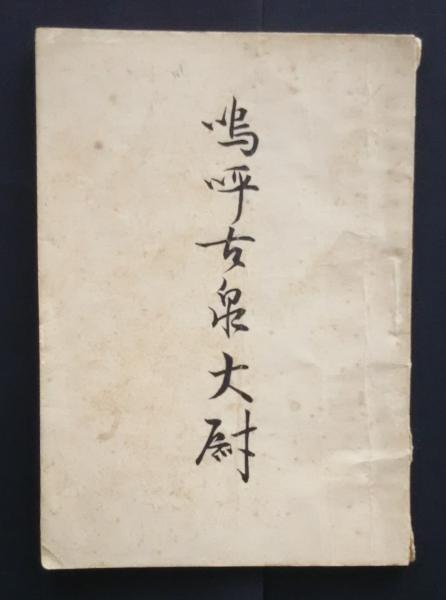 嗚呼古泉大尉